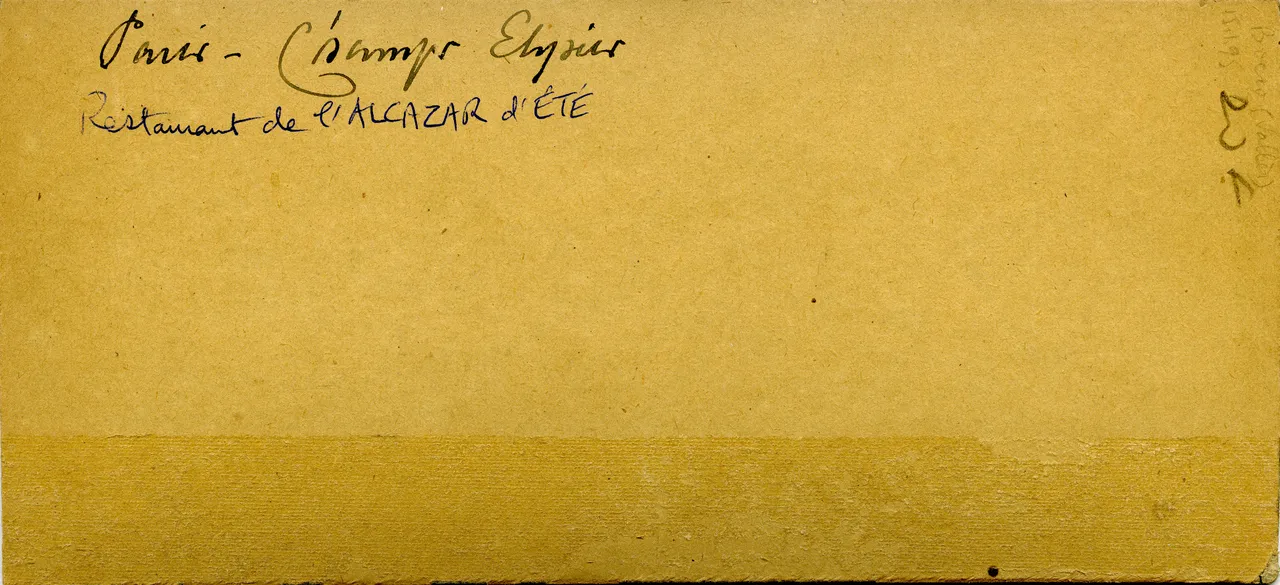 Paris - Champs Elysées
Restaurant de l'ALCAZAR d'ÉTÉ